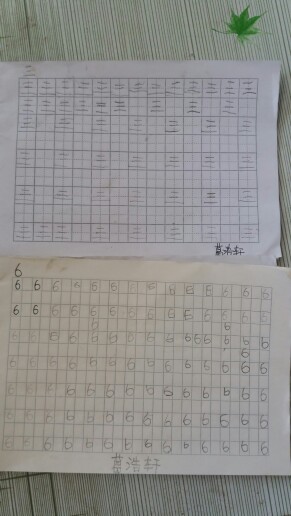 三
三 三 三 三 三 三 三 三 三 三 三 三 三
三 三 三 三 三 三 三 三 三
三 三 三 三 三 三 三
三 三 三 三 三 三 三
三 三 三 三 三 三 三
三 三 三 三 三 三 三
浩轩
6
6 6 6 6 6 6 6 6 6 6 6 6 6 6
6 6 6 6 6 6 6 6 6 6 6 6 6 6
6 6
6 6 6 6 6 6 6 6 6 6 6 6 6 6 6
6
6 6 6 6 6 6 6 6 6 6 6 6 6 6
6 6 6 6 6 6 6 6 6 6 6 6 6 6
6 6 6 6 6 6 6 6 6 6 6 6 6 6
6 6 6 6 6 6 6 6 6 6 6 6 6 6
浩轩